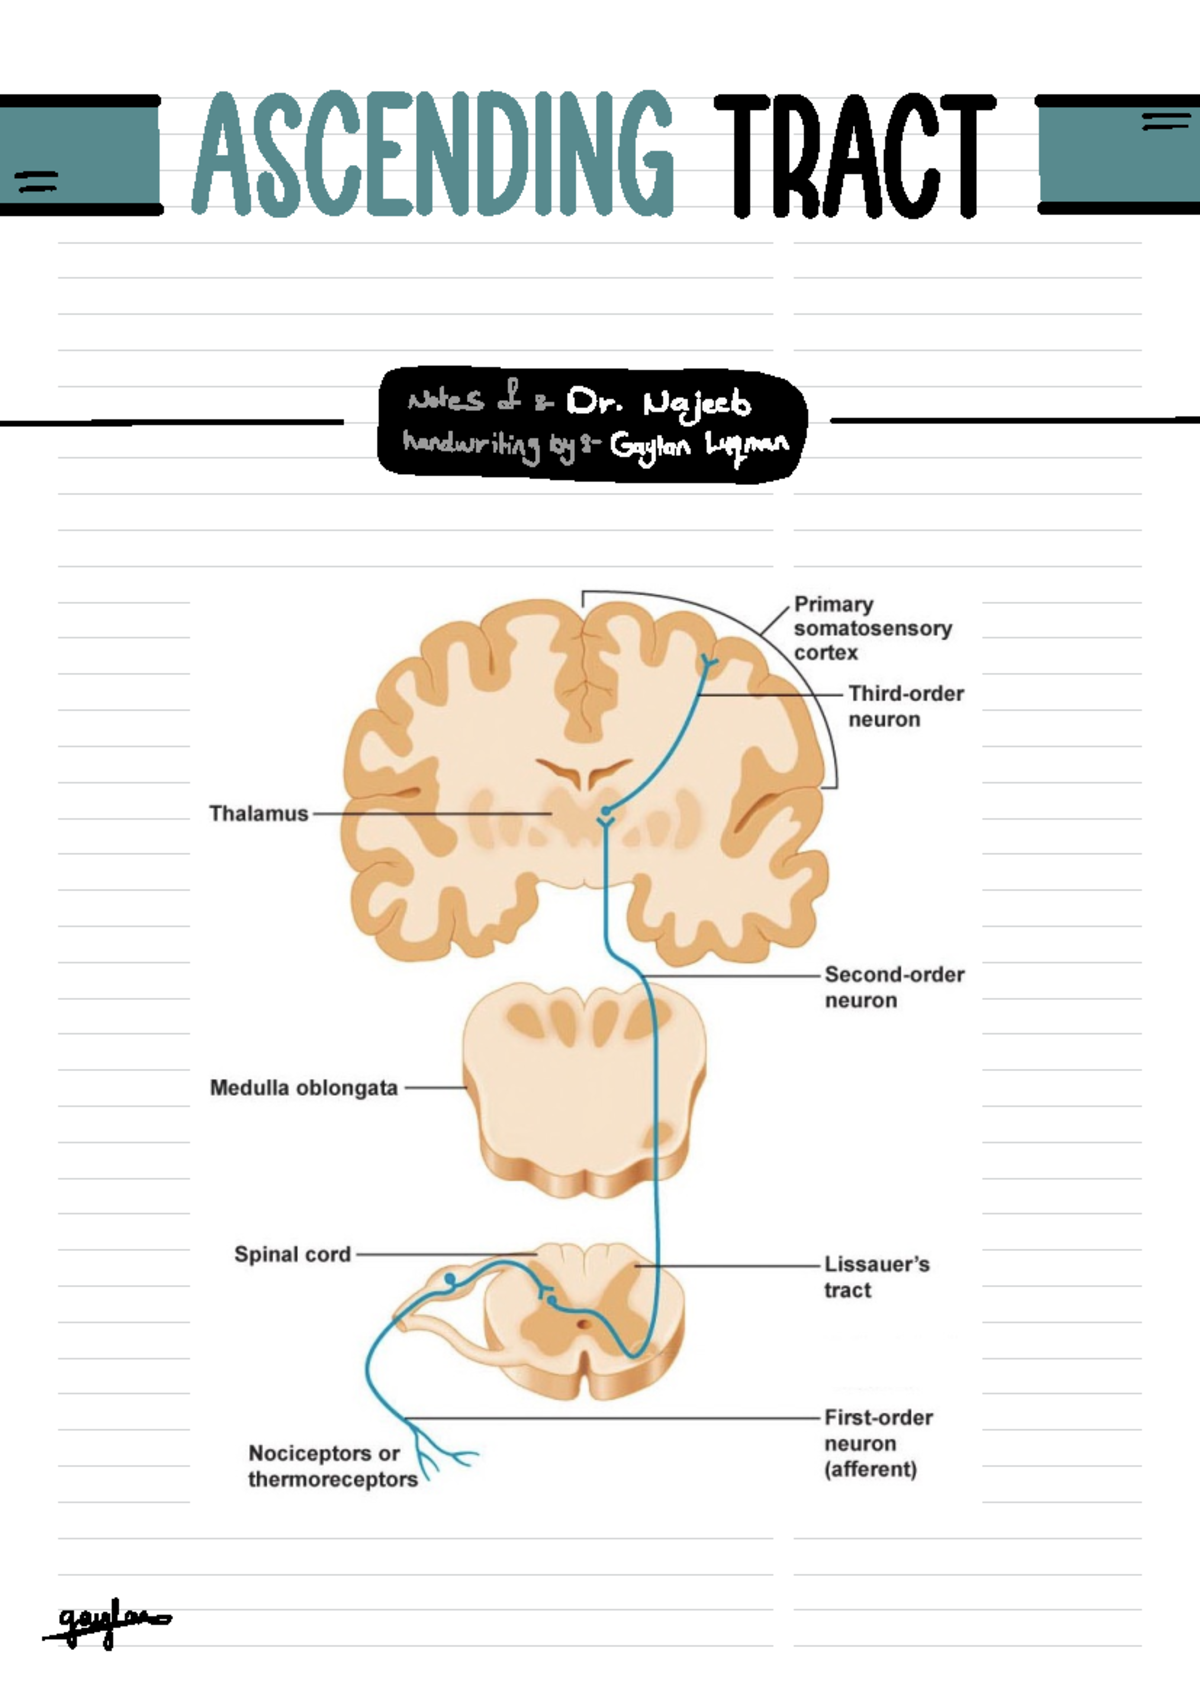 ASCENDING TRACT
Notes of :- Dr. Najeeb
handwriting by :- Gaylan Luqman
Primary
somatosensory
cortex
Third-order
neuron
Thalamus
Second-order
neuron
Medulla oblongata
Spinal cord
Lissauer's
tract
First-order
neuron
(afferent)
Nociceptors or
thermoreceptors
gaylan